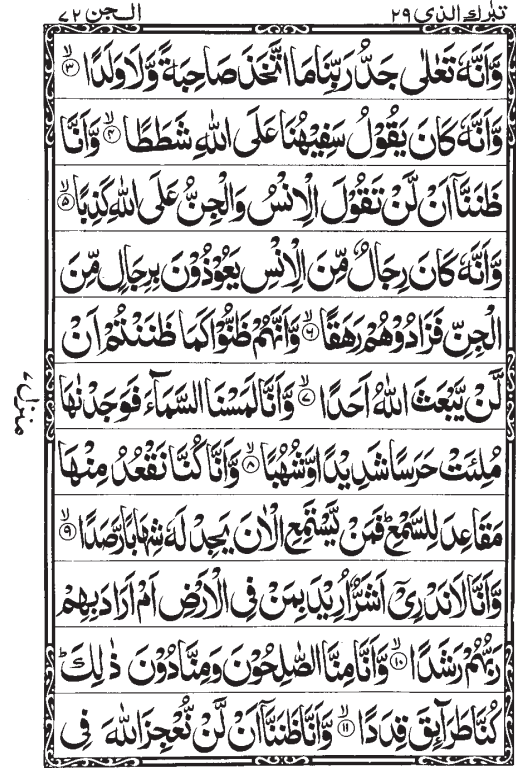 تبٰرك الذی ٢٩
الجن ٧٢
وَّاَنَّهٗ تَعٰلٰی جَدُّ رَبِّنَا مَا اتَّخَذَ صَاحِبَةً وَّلَا وَلَدًا ﴿٣﴾ۙ
وَّاَنَّهٗ كَانَ يَقُوْلُ سَفِيْهُنَا عَلَی اللّٰهِ شَطَطًا ﴿٤﴾ۙ وَّاَنَّا
ظَنَنَّاۤ اَنْ لَّنْ تَقُوْلَ الْاِنْسُ وَالْجِنُّ عَلَی اللّٰهِ كَذِبًا ﴿٥﴾ۙ
وَّاَنَّهٗ كَانَ رِجَالٌ مِّنَ الْاِنْسِ يَعُوْذُوْنَ بِرِجَالٍ مِّنَ
الْجِنِّ فَزَادُوْهُمْ رَهَقًا ﴿٦﴾ۙ وَّاَنَّهُمْ ظَنُّوْا كَمَا ظَنَنْتُمْ اَنْ
لَّنْ يَّبْعَثَ اللّٰهُ اَحَدًا ﴿٧﴾ۙ وَّاَنَّا لَمَسْنَا السَّمَآءَ فَوَجَدْنٰهَا
مُلِئَتْ حَرَسًا شَدِيْدًا وَّشُهُبًا ﴿٨﴾ۙ وَّاَنَّا كُنَّا نَقْعُدُ مِنْهَا
مَقَاعِدَ لِلسَّمْعِ ؕ فَمَنْ يَّسْتَمِعِ الْاٰنَ يَجِدْ لَهٗ شِهَابًا رَّصَدًا ﴿٩﴾ۙ
وَّاَنَّا لَا نَدْرِیْۤ اَشَرٌّ اُرِيْدَ بِمَنْ فِی الْاَرْضِ اَمْ اَرَادَ بِهِمْ
رَبُّهُمْ رَشَدًا ﴿١٠﴾ۙ وَّاَنَّا مِنَّا الصّٰلِحُوْنَ وَمِنَّا دُوْنَ ذٰلِكَ ؕ
كُنَّا طَرَآئِقَ قِدَدًا ﴿١١﴾ۙ وَّاَنَّا ظَنَنَّاۤ اَنْ لَّنْ نُّعْجِزَ اللّٰهَ فِی
منزل ٧